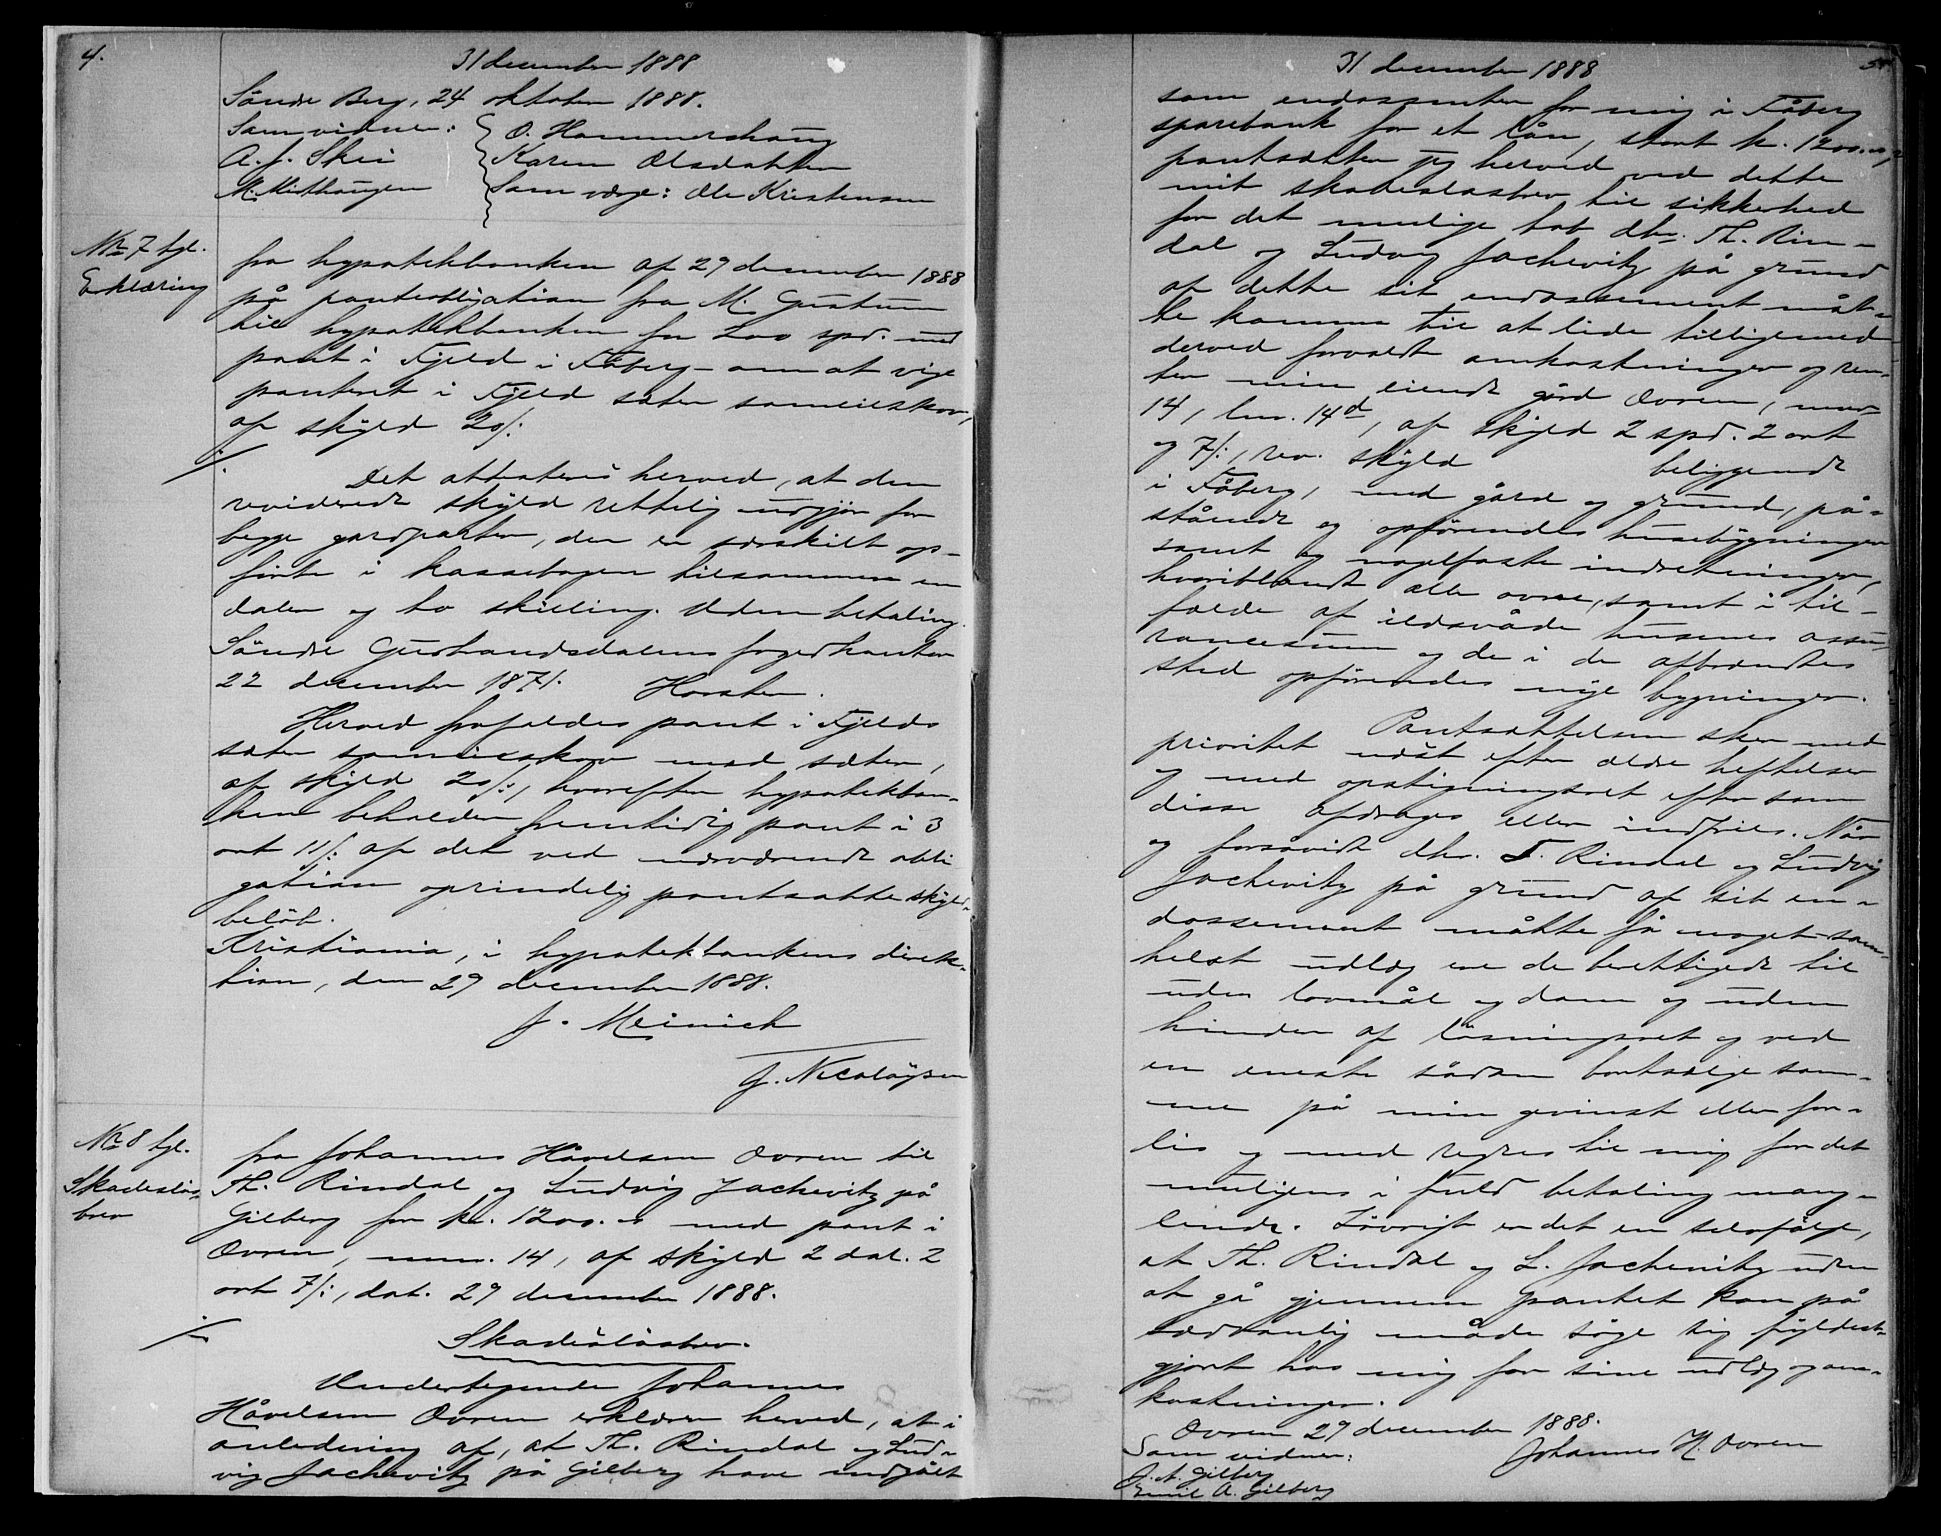 4.
31 december 1888
Søndre Berg, 24 oktober 1888.
Som vidner: O. Hammershaug
A. J. Skei Karen Olsdatter
M. Midthaugen Som værge: Ole Kristensen
No 7 tgl.
Erklæring
fra hypotekbanken af 27 december 1888
på panteobligation fra M. Gustum
til hypotekbanken for 200 spd. med
pant i Fjeld i Fåberg – om at vige
panteret i Fjeld sæter sameieskov,
af skyld 20 /:
Det attesteres herved, at den
reviderede skyld rettelig udgjør for
begge gardparter, der er særskilt op-
førte i kassebogen tilsammen en
daler og to skilling. Uden betaling.
Søndre Gudbrandsdalens fogedkontor
22 december 1871. Horster.
Herved frafaldes pant i Fjelds
sæter sameieskov med sæter,
af skyld 20 /:, hvorefter hypotekban-
ken beholder fremtidig pant i 3
ort 11 /: af det ved nærværende obli
gation oprindelig pantsatte skyld-
beløb.
Kristiania, i hypotekbankens direk-
tion, den 27 december 1888.
J. Meinich
J. Nicolaysen
No 8 tgl.
Skadesløs-
brev
fra Johannes Håvelsen Ovren til
Th. Rindal og Ludvig Jachevitz på
Gilberg for kr. 1200.00 med pant i
Ovren, mno. 14, af skyld 2 dal. 2
ort 7 /:, dat. 27 december 1888.
Skadesløsbrev.
Undertegnede Johannes
Håvelsen Ovren erklærer herved, at i
anledning af, at Th. Rindal og Lud-
vig Jachevitz på Gilberg have indgået
31 december 1888
5
som endossenter for mig i Fåberg
sparebank for et lån, stort kr. 1200.00,
pantsætter jeg herved ved dette
mit skadesløsbrev til sikkerhed
for det mulige tab dhr. Th. Rin-
dal og Ludvig Jachevitz på grund
af dette sit endossement måt-
te komme til at lide tilligemed
derved forvoldt omkostninger og ren-
ter min eiende gård Ovren, mno
14, lno. 14d, af skyld 2 spd. 2 ort
og 7 /:, rev. skyld beliggende
i Fåberg, med gård og grund, på-
stående og opførendes husebygninger
samt og nagelfaste indretninger,
hvoriblandt alle ovne, samt i til-
fælde af ildsvåde husenes assu-
rancesum og de i de afbrændtes
sted opførendes nye bygninger.
Pantsættelsen sker med
prioritet næst efter ældre heftelser
og med opstigningsret efter som
disse afdrages eller indfries. Når
og forsåvidt dhr. T. Rindal og Ludvig
Jachevitz på grund af sit en-
dossement måtte få noget som-
helst udlæg ere de berettigede til
uden lovmål og dom og uden
hinder af løsningsret og ved
en eneste sådan bortsælge sam-
me på min gevinst eller for-
lis og med regres til mig for det
muligens i fuld betaling mang-
lende. Iøvrigt er det en selvfølge,
at Th. Rindal og L. Jachevitz uden
at gå gjennem pantet kan på
sædvanlig måde søge sig fyldest-
gjort hos mig for sine udlæg og om-
kostninger.
Ovren 27 december 1888.
Som vidner: Johannes H. Ovren
J. A. Gilberg
Emil A. Gilberg